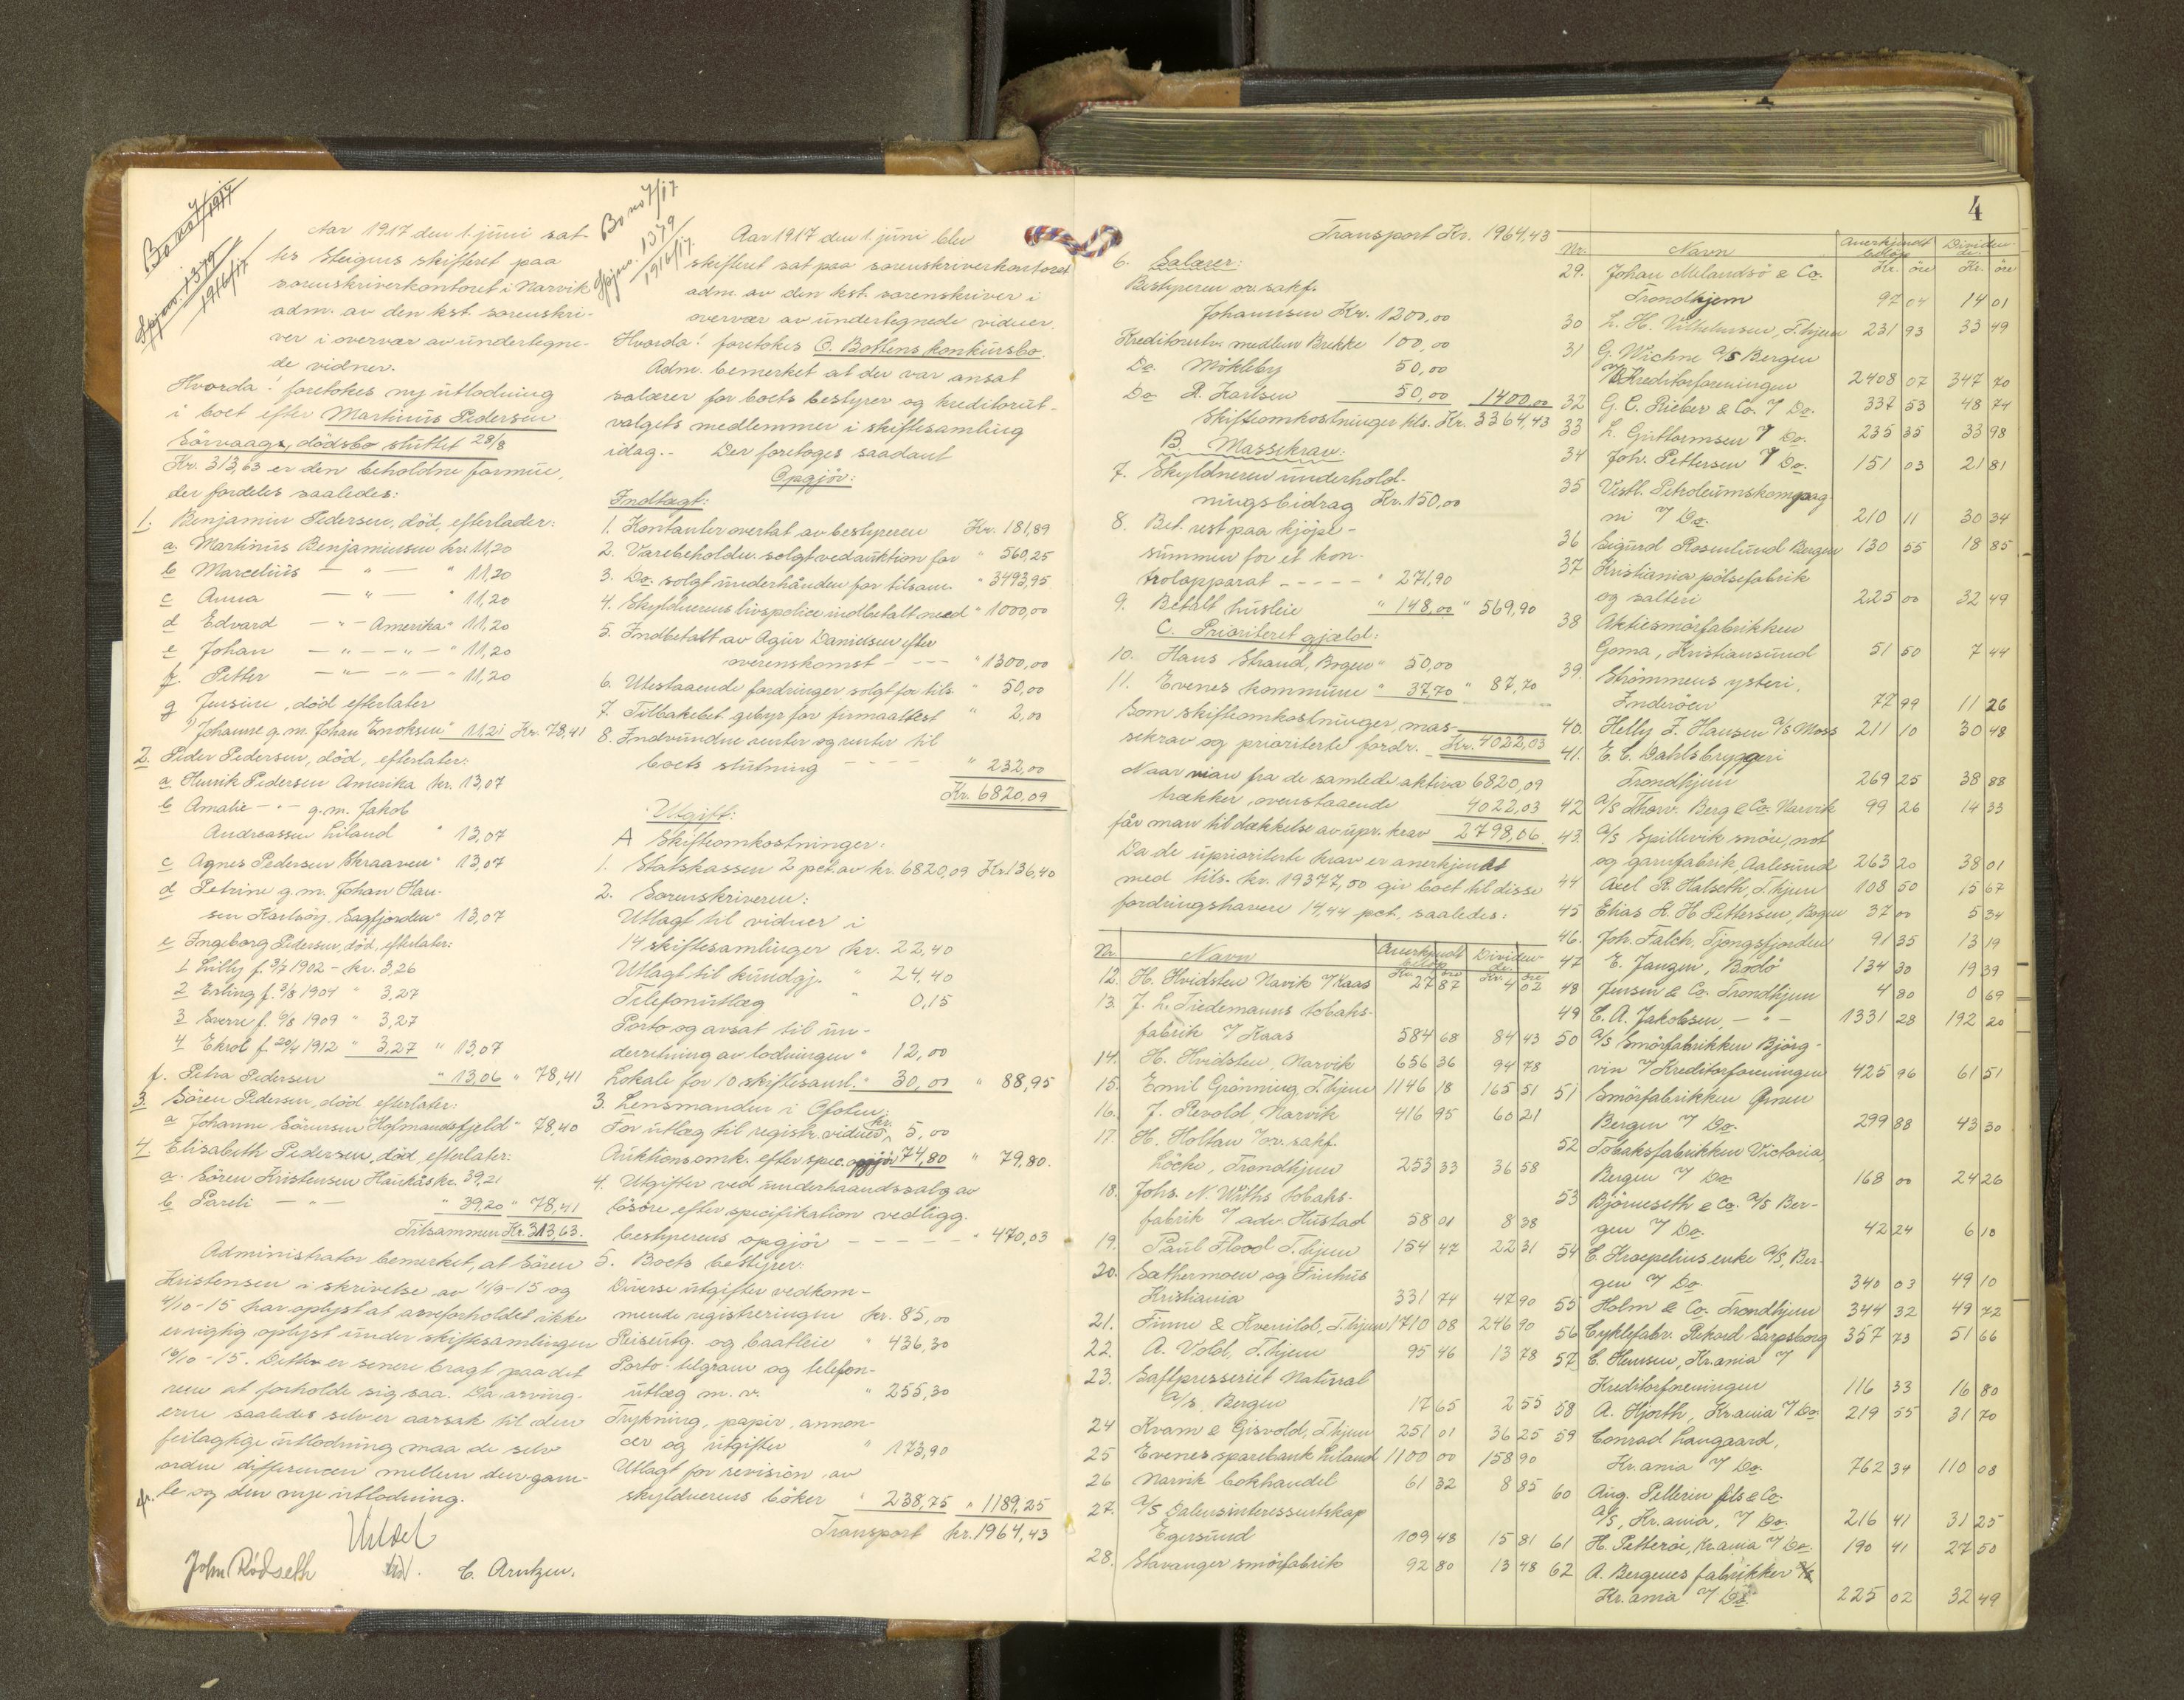 Bo no 7/1917
Spj no. 1379
1916/17
Aar 1917 den 1. juni sat-
tes Steigens skifteret paa
sorenskriverkontoret i Narvik
adm. av den kst. sorenskri-
ver i overvær av undertegne-
de vidner.
Hvorda! foretokes ny utlodning
i boet efter Martinus Pedersen
Sörvaags, dödsbo sluttet 28/8
Kr. 313,63 er den beholdne formue,
der fordeles saaledes:
1. Benjamin Pedersen, död, efterlader:
a. Martinus Benjaminsen kr. 11,20
b Marcelius — " — " 11,20
c Anna — " — " 11,20
d Edvard — " — Amerika " 11,20
e Johan — " — — " — " 11,20
f. Petter — " — — " — " 11,20
g Jensine, död efterlater
1) Johanne g.m. Johan Enoksen " 11,21 Kr. 78,41
2. Peder Pedersen, död, efterlater:
a Henrik Pedersen Amerika kr. 13,07
b Amalie — " — g.m. Jakob
Andreassen Liland " 13,07
c Agnes Pedersen Skraaven " 13,07
d Petrine g.m. Johan Han-
sen Karlsöy. Sagfjorden " 13,07
e Ingeborg Pedersen, död, efterlater:
1 Lilly f. 3/7 1902 - kr. 3,26
2 Erling f. 3/8 1904 " 3,27
3 Sverre f. 6/8 1909 " 3,27
4 Ekrol f. 20/4 1912 " 3,27 " 13,07
f. Petra Pedersen " 13,06 " 78,41
3 Sören Pedersen, död efterlater:
a Johanne Sörensen Hofmandsfjeld " 78,40
4. Elisabeth Pedersen, död, efterlater:
a. Sören Kristensen Haukås kr. 39,21
b Pareli — " — " 39,20 " 78,41
Tilsammen Kr. 313,63.
Administrator bemerket, at Sören
Kristensen i skrivelse av 11/9-15 og
4/10-15 har oplyst at arveforholdet ikke
er rigtig oplyst under skiftesamlingen
16/10-15. Dette er senere bragt paa det
rene at forholde sig saa. Da arving-
erne saaledes selv er aarsak til den
feilagtige utlodning maa de selv
ordne differencen mellem den gam-
le og den nye utlodning.
John Rödseth
kst.
C. Arntzen.
Bo no 7/17
Spj no. 1379
1916/17.
Aar 1917 den 1. juni blev
skifteret sat paa sorenskriverkontoret
adm. av den kst. sorenskriver i
overvær av undertegnede vidner.
Hvorda! foretokes O. Bottens konkursbo.
Adm. bemerket at der var ansat
salærer for boets bestyrer og kreditorut-
valgets medlemmer i skiftesamling
idag. - Der foretoges saadant
Opgjör:
Indtægt:
1. Kontanter overtat av bestyreren Kr. 181,89
2. Varebeholdn. solgt ved auktion for " 560,25
3. Do. solgt underhånden for tilsam. " 3493,95
4. Skyldnerens livspolice indbetalt med " 1000,00
5. Indbetalt av Agur Danielsen efter
overenskomst - - - - " 1300,00
6. Utestaaende fordringer solgt for tils. " 50,00
7. Tilbakebet. gebyr for firmaattest " 2,00
8. Indvundne renter og renter til
boets slutning - - - - " 232,00
Kr. 6820,09
Utgift:
A Skifteomkostninger:
1. Statskassen 2 pct. av kr. 6820,09 Kr. 136,40
2. Sorenskriveren:
Utlagt til vidner i
14 skiftesamlinger kr. 22,40
Utlagt til kundgj. " 24,40
Telefonutlæg " 0,15
Porto og avsat til un-
derretning av lodningen " 12,00
Lokale for 10 skiftesaml. " 30,00 " 88,95
3. Lensmanden i Ofoten:
For utlæg til registr. vidner kr. 5,00
Auktionsomk. efter spec. opgjör 74,80 " 79,80.
4. Utgifter ved underhaandssalg av
lösöre efter specifikation vedligg.
bestyrerens opgjör - - - - - " 470,03
5. Boets bestyrer:
Diverse utgifter vedkom-
mende registreringen kr. 85,00
Reiseutg. og baatleie " 436,30
Porto telgram og telefon-
utlæg m.v. " 255,30
Trykning, papir, annon-
cer og utgifter " 173,90
Utlagt for revision av
skyldnerens böker " 238,75 " 1189,25
Transport kr. 1964,43
4
Transport Kr. 1964,43
6. Salærer:
Bestyreren or. sakf.
Johannsen Kr. 1200,00
Kreditorutv. medlem Brekke 100,00
Do Mökleby 50,00
Do R. Karlsen 50,00 1400,00
Skifteomkostninger tils. Kr. 3364,43
B Massekrav:
7. Skyldneren underhold-
ningsbidrag Kr. 150,00
8. Bet. rest paa kjöpe-
summen for et kon-
trolapparat - - - - - " 271,90
9. Betalt husleie " 148,00 " 569,90
C. Prioriteret gjæld:
10. Hans Strand, Bogen " 50,00
11. Evenes kommune " 37,70 " 87,70
Som skifteomkostninger, mas-
sekrav og prioriterte fordr. Kr. 4022,03
Naar man fra de samlede aktiva 6820,09
trækker ovenstaaende 4022,03
får man til dækkelse av upr. krav 2798,06.
Da de uprioriterte krav er anerkjendt
med tils. kr. 19377,00 gir boet til disse
fordringshavere 14,44 pct. saaledes:
Nr. Navn Anerkjendt belöp Dividende
Kr. öre Kr. öre
12. H. Hvidsten Narvik v/ Kaas 27 87 4 02
13. J. L. Tiedemanns tobaks-
fabrik v/ Kaas 584 68 84 43
14. H. Hvidsten, Narvik 656 36 94 78
15. Emil Grönning, T.hjem 1146 18 165 51
16. J. Revold, Narvik 416 95 60 21
17. H. Holtan v/ or. sakf.
Löcke, Trondhjem 253 33 36 58
18. Johs. N. Withs tobaks-
fabrik v/ adv. Hustad 58 01 8 38
19. Paul Flood T.hjem 154 47 22 31
20. Sæthermoen og Finhus
Kristiania 331 74 47 90
21. Finne & Kvenild, T.hjem 1710 08 246 90
22. A. Vold, T.hjem 95 46 13 78
23. Saftpresseriet Natural
A/S, Bergen 17 65 2 55
24 Kvam & Gisvold, T.hjem 251 01 36 25
25 Evenes sparebank Liland 1100 00 158 90
26 Narvik bokhandel 61 32 8 85
27. A/S Dalens interessentskap
Egersund 109 48 15 81
28. Stavanger smörfabrik 92 80 13 48
Nr. Navn Anerkjendt belöp Dividende
Kr. öre Kr. öre
29. Johan Melandsö & Co.
Trondhjem 97 04 14 01
30 L. H. Vilhelmsen, T.hjem 231 93 33 49
31 G. Wichne A/S Bergen
v/ Kreditorforeningen 2408 07 347 70
32 G. C. Rieber & Co. v/ Do. 337 53 48 74
33 L. Guttormsen v/ Do. 235 35 33 98
34 Joh. Pettersen v/ Do. 151 03 21 81
35 Vestl. Petroleumskompag
ni v/ Do. 210 11 30 34
36 Sigurd Rosenlund Bergen 130 55 18 85
37 Kristiania pölsefabrik
og salteri 225 00 32 49
38 Aktiesmörfabrikken
Goma, Kristiansund 51 50 7 44
39. Strömmens ysteri,
Inderöen 77 99 11 26
40. Helly J. Hansen A/S Moss 211 10 30 48
41. E. C. Dahls bryggeri
Trondhjem 269 25 38 88
42 A/S Thorv. Berg & Co. Narvik 99 26 14 33
43. A/S Spillevik snöre, not
og garnfabrik, Aalesund 263 20 38 01
44 Axel R. Halseth, T.hjem 108 50 15 67
45 Elias K. H. Pettersen, Bogen 37 00 5 34
46. Joh. Falch, Tjongsfjorden 91 35 13 19
47 E. Jangen, Bodö 134 30 19 39
48 Jensen & Co. Trondhjem 4 80 0 69
49 C. A. Jakobsen - " - 1331 28 192 20
50 A/S Smörfabrikken Björg-
vin v/ Kreditorforeningen 425 96 61 51
51 Smörfabrikken Ørnen
Bergen v/ Do. 299 88 43 30
52 Tobaksfabrikken Victoria,
Bergen v/ Do 168 00 24 26
53 Björneseth & Co. A/S Ber-
gen v/ Do. 42 24 6 10
54 C. Kroepelius enke A/S, Ber-
gen v/ Do. 340 03 49 10
55 Holm & Co. Trondhjem 344 32 49 72
56 Cyklefabr. Rekord Sarpsborg 357 73 51 66
57 C. Hensen, Kr.ania v/
Kreditorforeningen 116 33 16 80
58 A. Hjorth, Kr.ania v/ Do. 219 55 31 70
59 Conrad Langaard,
Kr.ania v/ Do. 762 34 110 08
60 Aug. Pellerin fils & Co.
A/S, Kr.ania, v/ Do. 216 41 31 25
61 H. Petteröe, Kr.ania v/ Do. 190 41 27 50
62 A. Bergenes fabrikker A/S
Kr.ania v/ Do. 225 02 32 49